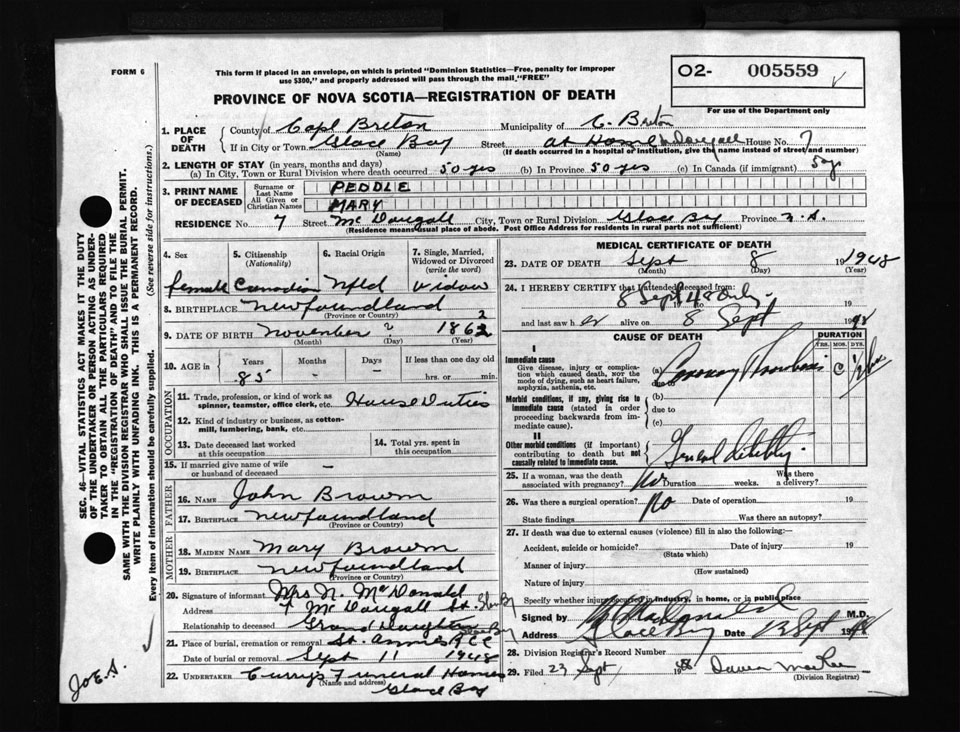 FORM 6
This form if placed in an envelope, on which is printed "Dominion Statistics—Free, penalty for improper
use $300," and properly addressed will pass through the mail. "FREE"
O2- 005559
For use of the Department only
PROVINCE OF NOVA SCOTIA—REGISTRATION OF DEATH
1. PLACE OF DEATH
County of Cape Breton Municipality of C. Breton
If in City or Town Glace Bay Street House No. 7
(Name) (If death occurred in a hospital of institution, give the name instead of street and number)
2. LENGTH OF STAY (in years, months and days)
(a) In City, Town or Rural Division where death occurred 50 yrs (b) In Province 50 yrs (c) In Canada (if immigrant) 50 y
3. PRINT NAME OF DECEASED
Surname or Last Name PEDDLE
All Given or Christian Names MARY
RESIDENCE No. 7 Street McDougall City, Town or Rural Division Glace Bay Province N.S.
(Residence means usual place of abode. Post Office Address for residents in rural parts not sufficient)
4. Sex
female
5. Citizenship (Nationality)
Canadian
6. Racial Origin
Nfld
7. Single, Married, Widowed or Divorced (write the word)
Widow
8. BIRTHPLACE Newfoundland
(Province or Country)
9. DATE OF BIRTH November 2 1862
(Month) (Day) (Year)
10. AGE in Years Months Days If less than one day old
85 - - hrs. or min.
OCCUPATION
11. Trade, profession, or kind of work as spinner, teamster, office clerk, etc. House Duties
12. Kind of industry or business, as cotton-mill, lumbering, bank, etc.
13. Date deceased last worked at this occupation
14. Total yrs. spent in this occupation
15. If married give name of wife or husband of deceased -
FATHER
16. NAME John Brown
17. BIRTHPLACE Newfoundland
(Province or Country)
MOTHER
18. MAIDEN NAME Mary Brown
19. BIRTHPLACE Newfoundland
(Province or Country)
20. Signature of informant Mrs N. McDonald
Address 7 McDougall St. Glace Bay
Relationship to deceased Grand daughter
21. Place of burial, cremation or removal St. Annes
Date of burial or removal Sept 11 1948
22. UNDERTAKER Currys Funeral Homes
(Name and address)
Glace Bay
MEDICAL CERTIFICATE OF DEATH
23. DATE OF DEATH Sept 8 1948
(Month) (Day) (Year)
24. I HEREBY CERTIFY that I attended deceased from:
8 Sept 48 Only
19 19
and last saw her alive on 8 Sept 1948
CAUSE OF DEATH DURATION
YRS. MOS. DYS.
I
Immediate cause
Give disease, injury or complication which caused death, NOT the mode of dying, such as heart failure, asphyxia, asthenia, etc.
(a) Coronary Thrombosis
due to
Morbid conditions, if any, giving rise to immediate cause (stated in order proceeding backwards from immediate cause).
(b)
due to
(c)
II
Other morbid conditions (if important) contributing to death but not causally related to immediate cause.
General debility
25. If a woman, was the death associated with pregnancy? No Duration weeks. Was there a delivery?
26. Was there a surgical operation? No Date of operation 19
State findings Was there an autopsy?
27. If death was due to external causes (violence) fill in also the following:—
Accident, suicide or homicide? Date of injury 19
(State which)
Manner of injury
(How sustained)
Nature of injury
Specify whether injury occurred in industry, in home, or in public place
Signed by M.D.
Address Glace Bay Date Sept 1948
28. Division Registrar's Record Number
29. Filed 23 Sept 1948
(Division Registrar)
SEC. 46—VITAL STATISTICS ACT MAKES IT THE DUTY
OF THE UNDERTAKER OR PERSON ACTING AS UNDER-
TAKER TO OBTAIN ALL THE PARTICULARS REQUIRED
IN THE "REGISTRATION OF DEATH" AND TO FILE THE
SAME WITH THE DIVISION REGISTRAR WHO SHALL ISSUE THE BURIAL PERMIT.
WRITE PLAINLY WITH UNFADING INK. THIS IS A PERMANENT RECORD.
Every item of information should be carefully supplied. (See reverse side for instructions.)